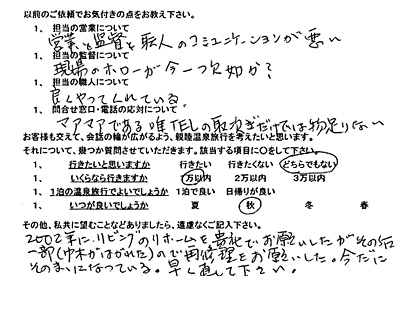 以前のご依頼でお気付きの点をお教え下さい。
1、 担当の営業について
営業と監督と職人のコミュニケーションが悪い
1、 担当の監督について
現場のホローが今一つ欠如か?
1、 担当の職人について
良くやってくれている。
1、 問合せ窓口・電話の応対について
マアマアである唯TELの取次ぎだけでは物足りない
お客様も交えて、会話の輪が広がるよう、親睦温泉旅行を考えたいと思います。
それについて、幾つか質問させていただきます。該当する項目に○をして下さい。
1、 行きたいと思いますか 行きたい 行きたくない どちらでもない
1、 いくらなら行きますか 1万以内 2万以内 3万以内
1、 1泊の温泉旅行でよいでしょうか 1泊で良い 日帰りが良い
1、 いつが良いでしょうか 夏 秋 冬 春
その他、私共に望むことなどありましたら、遠慮なくご記入下さい。
2002年に、リビングのリホームを貴社でお願いしたがその後
一部(巾木がはがれた)ので再修理をお願いした。今だに
そのまゝになっている。早く直して下さい。